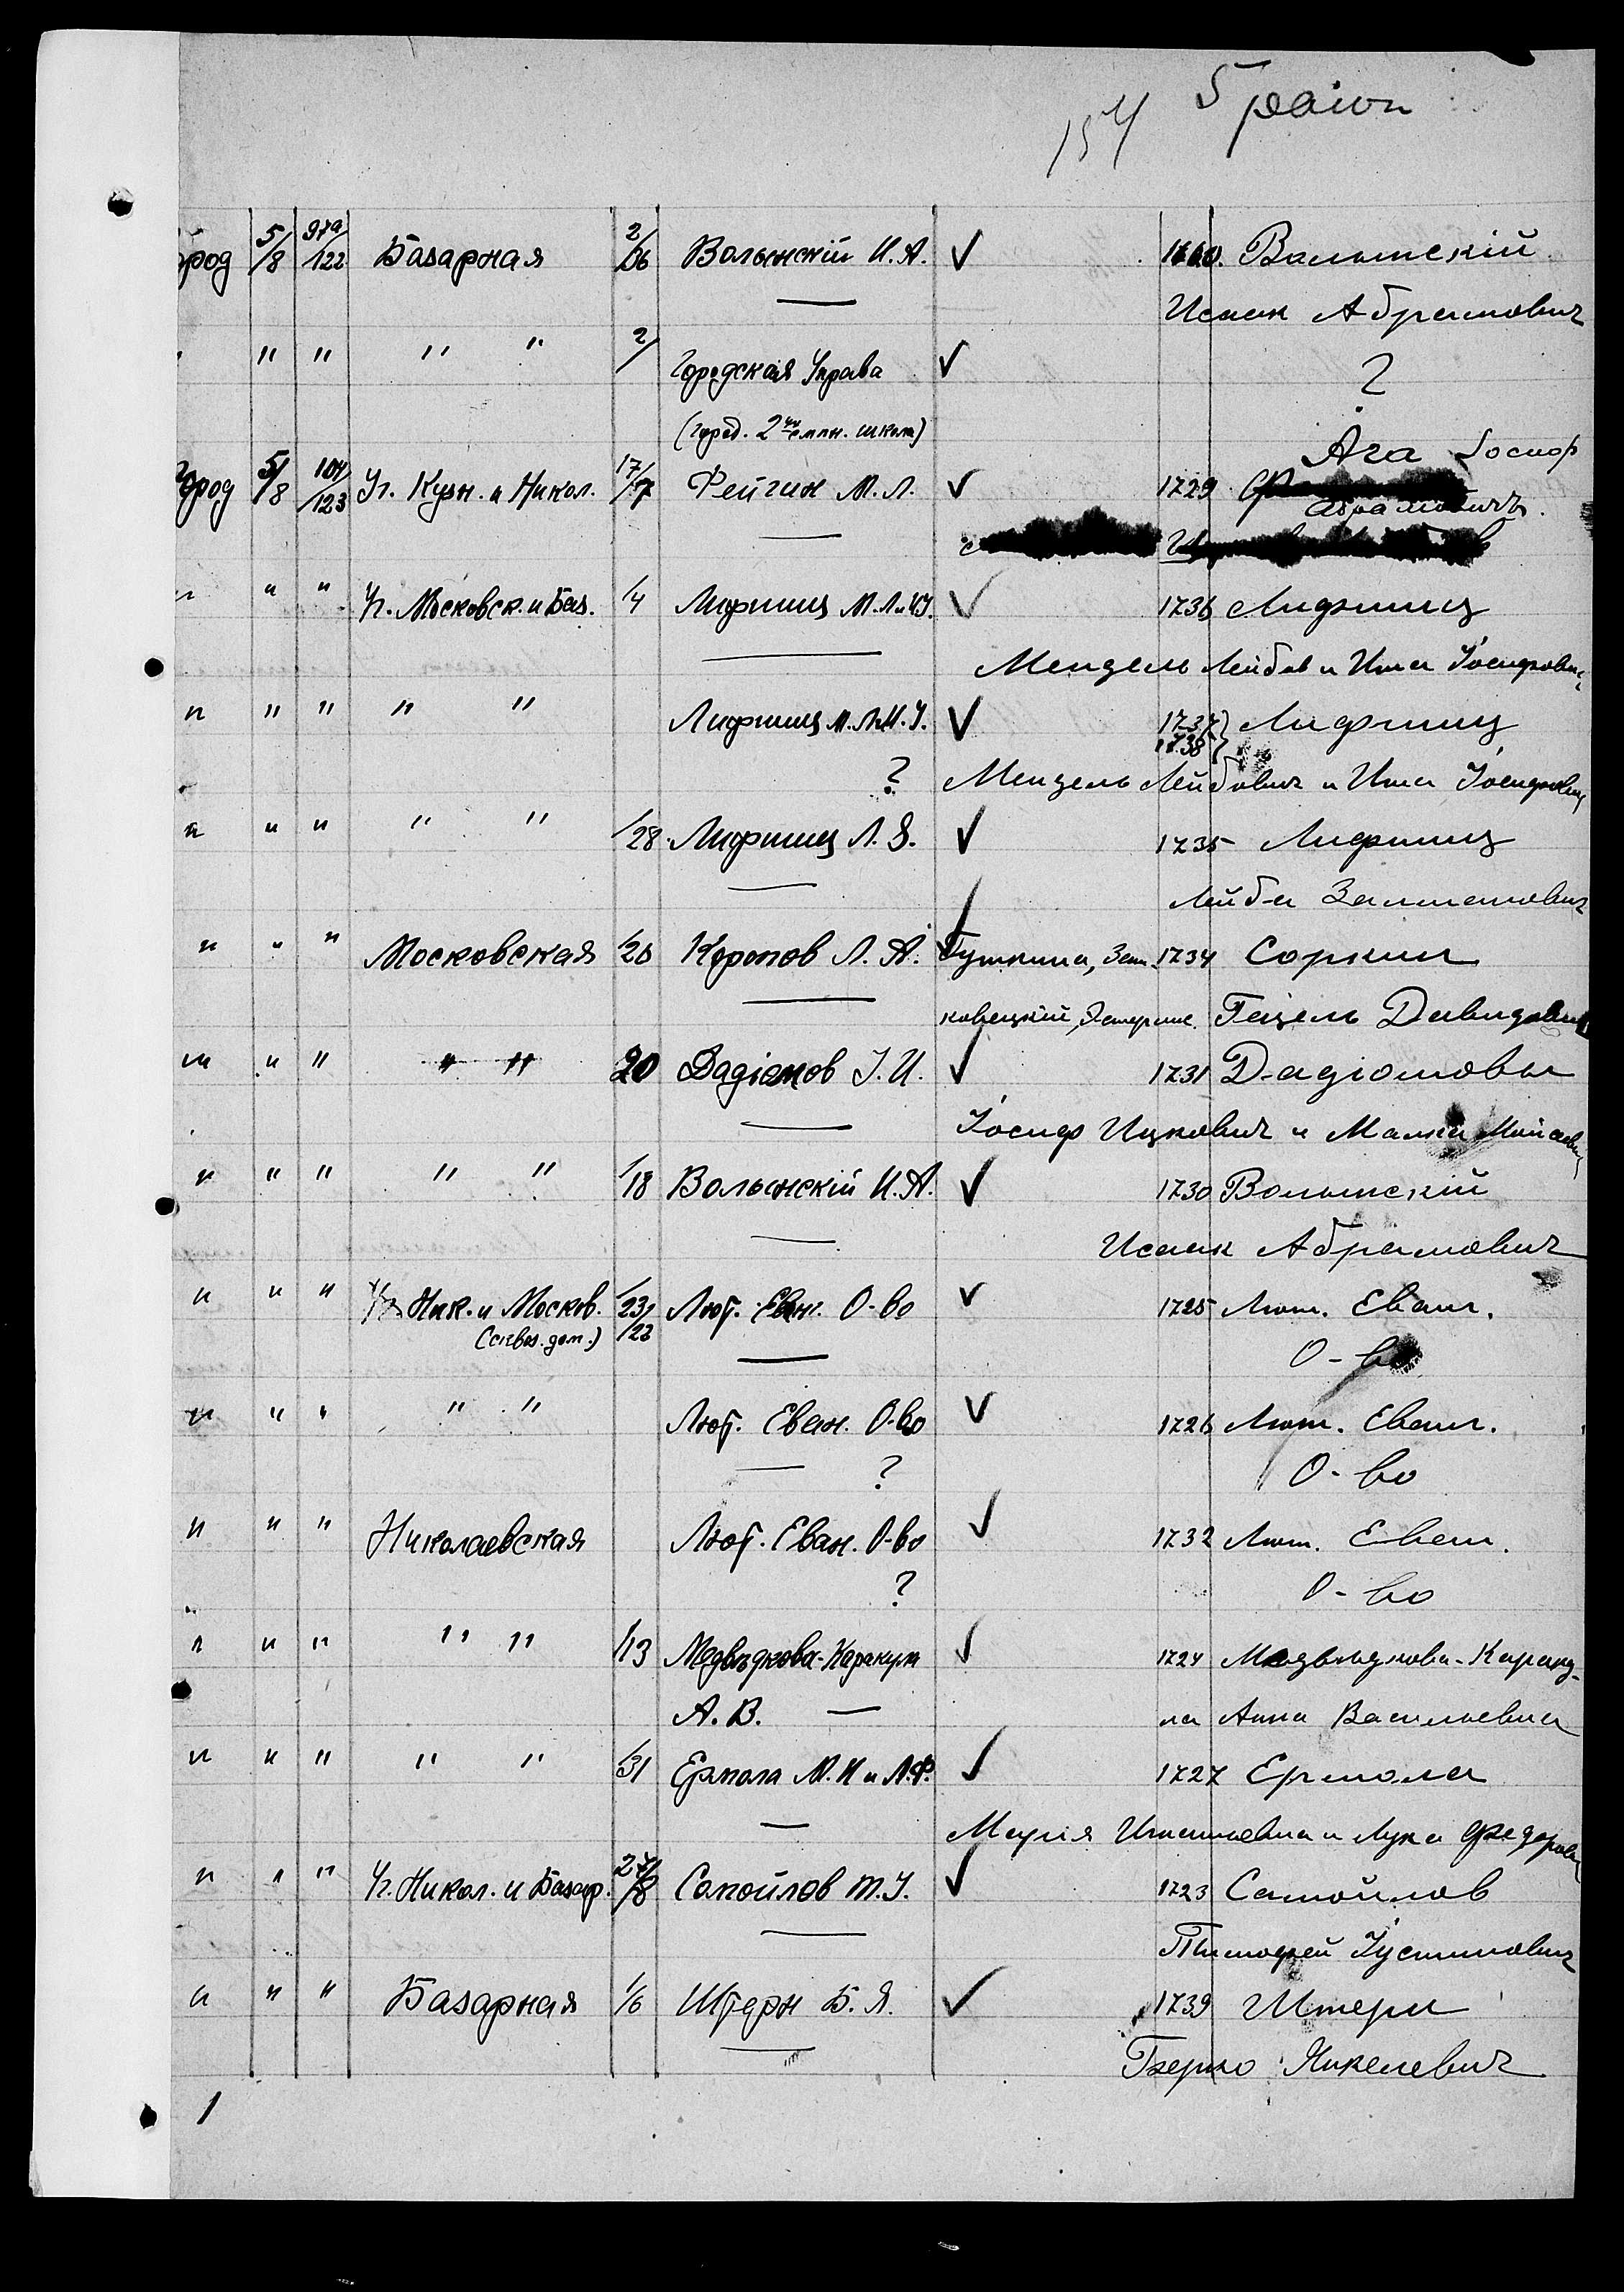 154 5 район
ород 5/8 97а/122 Базарная 2/36 Волынскій И. А. ✓ 1660. Волынскій
Исаак Абрамович
" " " " 2/ Городская Управа ✓ ?
(город. 2 школа)
Ага Іосиф
ород 5/8 104/123 Уг. Кузн. и Никол. 17/7 Фейгин М. Л. ✓ 1729
Абрамовичъ.
" " " Уг. Московск. и Баз. /4 Лифшиц М. Л. и И. І. ✓ 1736 Лифшиц
Мендель Лейбов и Има Іосифович
" " " " " Лифшиц М. Л. и И. І. ✓ 1737 } Лифшиц
1738 }
? Мендель Лейбович и Има Іосифович
" " " " " /28 Лифшиц Л. З. ✓ 1735 Лифшиц
Лейба Залманович
" " " Московская /26 Коропов Л. А. ✓ 1734 Соркин
Давидович
" " " " " 20 Дадіомов І. И. ✓ 1731 Дадіомовы
Іосиф Ицкович и Малка
" " " " " /18 Волынскій И. А. ✓ 1730 Волынскій
Исаак Абрамович
" " " Уг. Ник. и Москов. /23 Лют. Еван. О-во ✓ 1725 Лют. Еванг.
(сквоз. дом.) /22 О-во
" " " " " Лют. Еван. О-во ✓ 1726 Лют. Еванг.
? О-во
" " " Николаевская Лют. Еван. О-во ✓ 1732 Лют. Еван.
? О-во
" " " " " /13 Медвѣдкова-Каракула ✓ 1724 Медвѣдкова-Караку-
А. В. ла Анна Васильевна
" " " " " /31 Ермола М. И и Л. Ф. ✓ 1727 Ермола
Марія Игнатьевна и Лука Федорович
" " " Уг. Никол. и Базар. 27/8 Самойлов Т. І. ✓ 1723 Самойлов
Тимофей Іустинович
" " " Базарная /6 Штерн Б. Я. ✓ 1739 Штерн
Берко Янкелевич
1